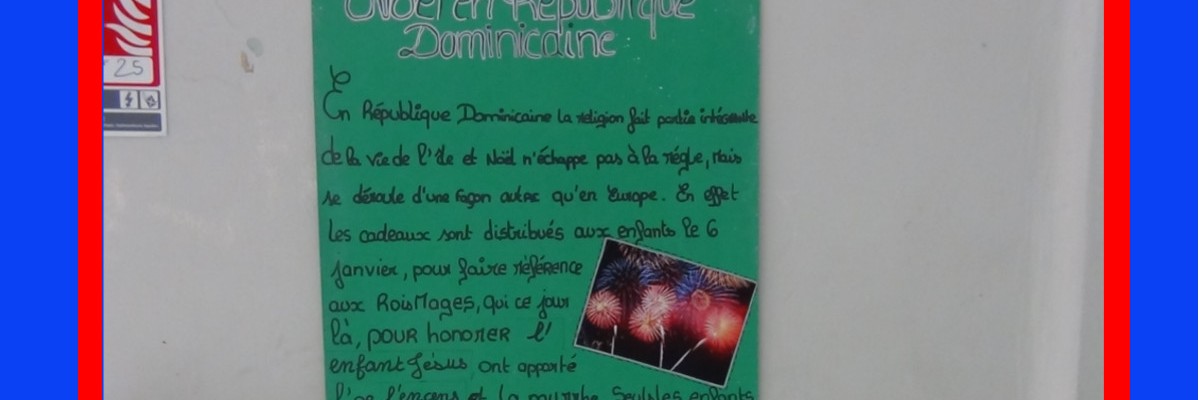 Noël en République
Dominicaine
25
En République Dominicaine la religion fait partie intégrante
de la vie de l'île et Noël n'échappe pas à la régle, mais
se déroule d'une façon autre qu'en Europe. En effet
les cadeaux sont distribués aux enfants le 6
janvier, pour faire référence
aux Rois Mages, qui ce jour
là, pour honorer l'
enfant Jésus ont apporté
l'or l'encens et la myrrhe. Seuls les enfants